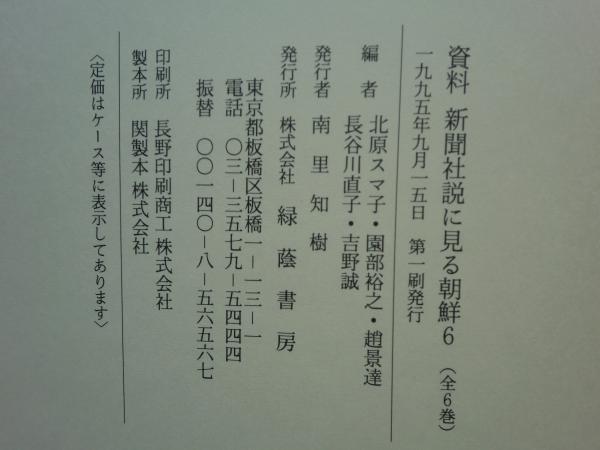 資料 新聞社説に見る朝鮮6 (全6巻)
一九九五年九月一五日 第一刷発行
編者 北原スマ子・園部裕之・趙景達
長谷川直子・吉野誠
発行者 南里知樹
発行所 株式会社 緑蔭書房
東京都板橋区板橋一-一三-一
電話 〇三-三五七九-五四四四
振替 〇〇一四〇-八-五六五六七
印刷所 長野印刷商工株式会社
製本所 関製本株式会社
〈定価はケース等に表示してあります〉